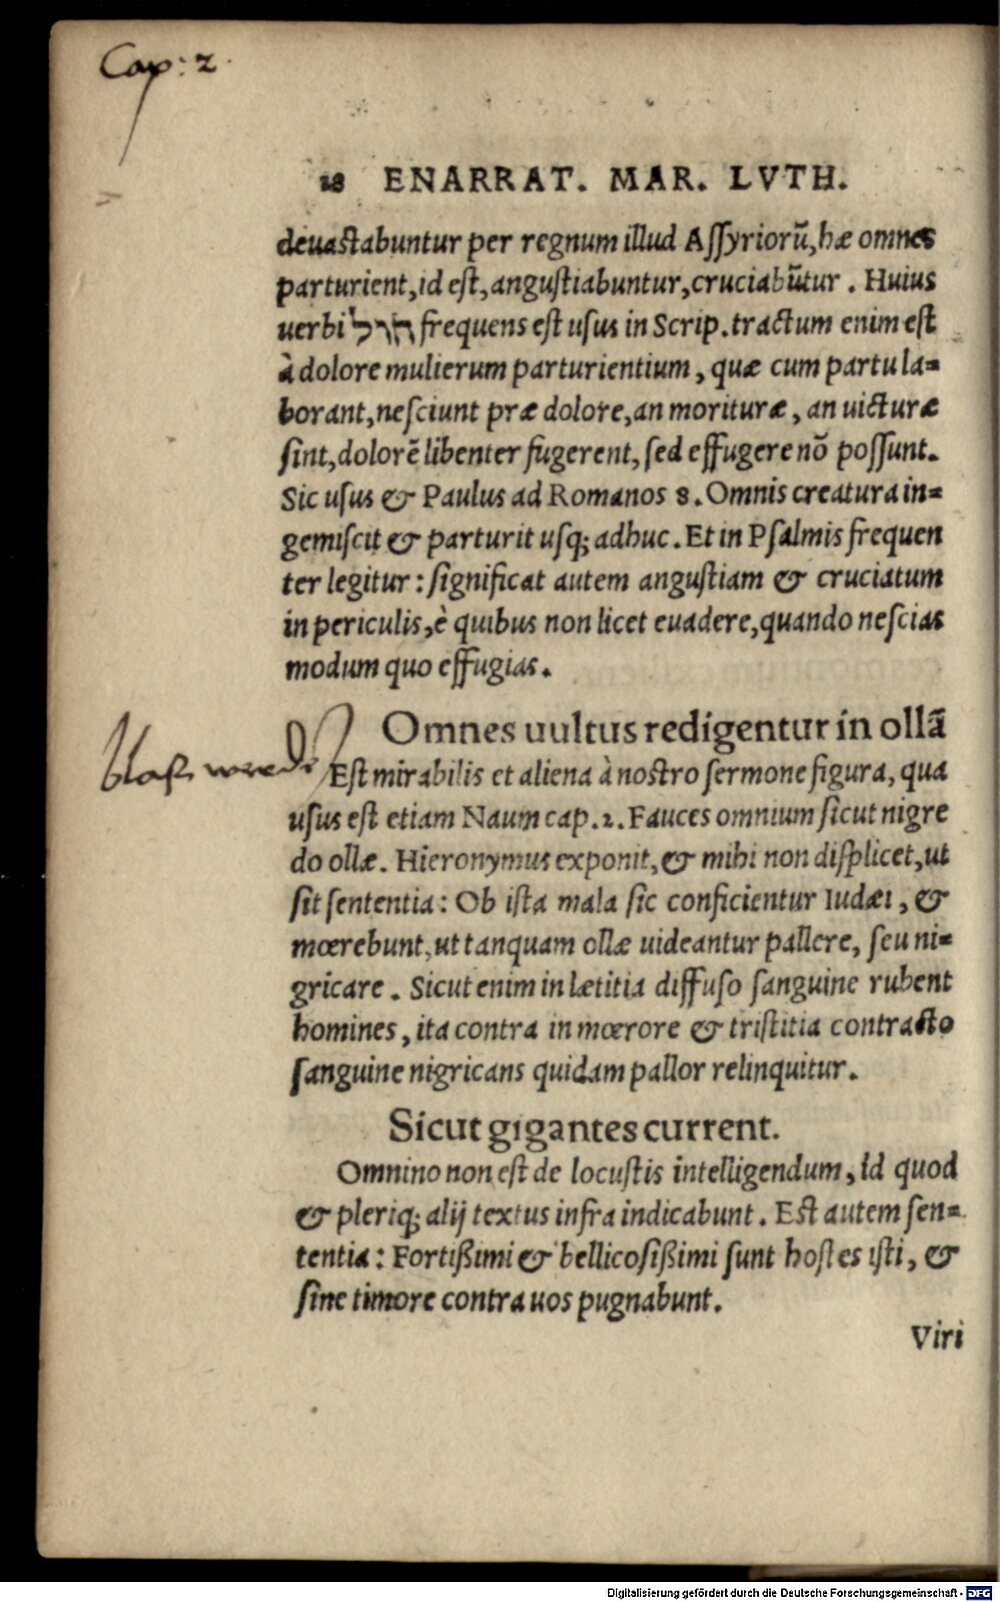 Cap: 2.
18 ENARRAT. MAR. LVTH.
deuastabuntur per regnum illud Assyriorũ, hæ omnes
parturient, id est, angustiabuntur, cruciabũtur. Huius
uerbi frequens est usus in Scrip. tractum enim est
à dolore mulierum parturientium, quæ cum partu la=
borant, nesciunt præ dolore, an morituræ, an uicturæ
sint, dolorẽ libenter fugerent, sed effugere nõ possunt.
Sic usus & Paulus ad Romanos 8. Omnis creatura in=
gemiscit & parturit usq; adhuc. Et in Psalmis frequen
ter legitur: significat autem angustiam & cruciatum
in periculis, è quibus non licet euadere, quando nescias
modum quo effugias.
Omnes uultus redigentur in ollã
blaß
Est mirabilis et aliena à nostro sermone figura, qua
usus est etiam Naum cap. 2. Fauces omnium sicut nigre
do ollæ. Hieronymus exponit, & mihi non displicet, ut
sit sententia: Ob ista mala sic conficientur Iudæi, &
mœrebunt, ut tanquam ollæ uideantur pallere, seu ni=
gricare. Sicut enim in lætitia diffuso sanguine rubent
homines, ita contra in mœrore & tristitia contracto
sanguine nigricans quidam pallor relinquitur.
Sicut gigantes current.
Omnino non est de locustis intelligendum, id quod
& pleriq; alij textus infra indicabunt. Est autem sen=
tentia: Fortißimi & bellicosißimi sunt hostes isti, &
sine timore contra uos pugnabunt.
Viri
Digitalisierung gefördert durch die Deutsche Forschungsgemeinschaft - DFG